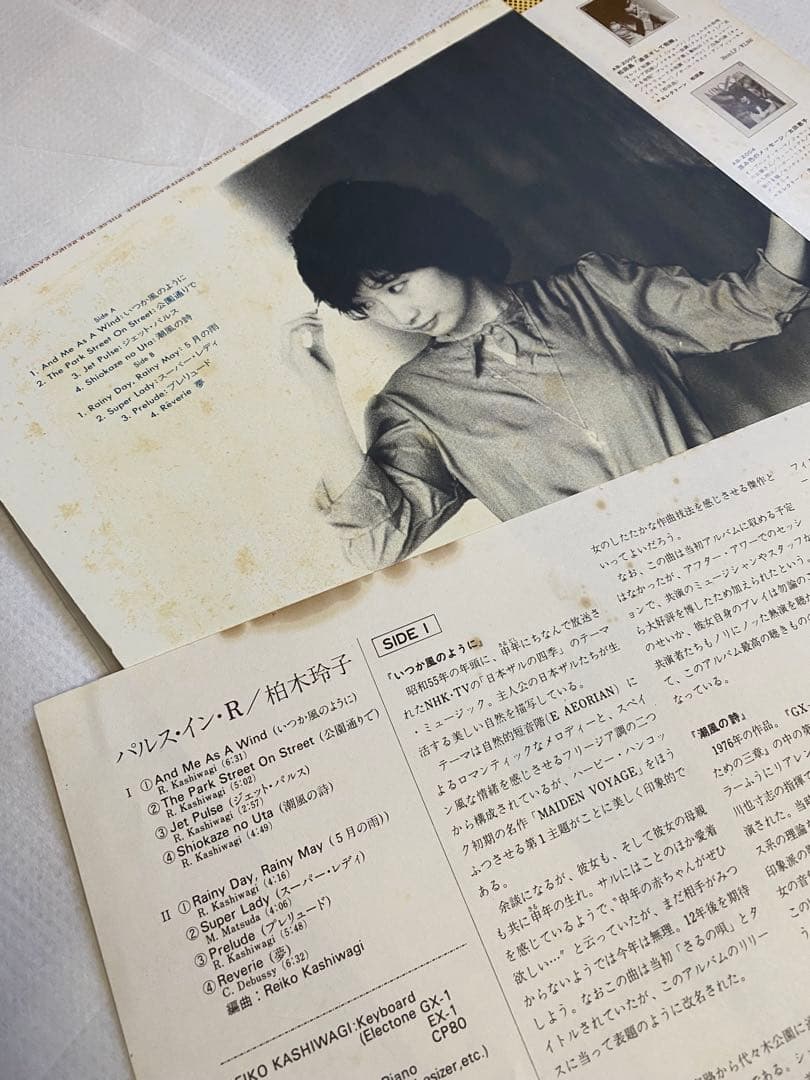 PULSE IN R REIKO KASHIWAGI
Side A
1. And Me As A Wind:いつか風のように
2. The Park Street On Street:公園通りで
3. Jet Pulse:ジェット・パルス
4. Shiokaze no Uta:潮風の詩
Side B
1. Rainy Day, Rainy May:5月の雨
2. Super Lady:スーパー・レディ
3. Prelude:プレリュード
4. Rêverie 夢
パルス・イン・R/柏木玲子
I ①And Me As A Wind (いつか風のように)
R. Kashiwagi (6:31)
②The Park Street On Street (公園通りて)
R. Kashiwagi (5:02)
③Jet Pulse (ジェット・パルス)
R. Kashiwagi (2:57)
④Shiokaze no Uta (潮風の詩)
R. Kashiwagi (4:49)
II ①Rainy Day, Rainy May (5月の雨))
R. Kashiwagi (4:16)
②Super Lady (スーパー・レディ)
M. Matsuda (4:06)
③Prelude (プレリュード)
R. Kashiwagi (5:48)
④Reverie (夢)
C. Debussy (6:32)
編曲:Reiko Kashiwagi
EIKO KASHIWAGI:Keyboard
(Electone GX-1
EX-1
CP80
Piano
esizer,etc.)
SIDE I
「いつか風のように」
昭和55年の年頭に、申年にちなんで放送さ
れたNHK・TVの「日本ザルの四季」のテーマ
・ミュージック。主人公の日本ザルたちが生
活する美しい自然を描写している。
テーマは自然的短音階(E AEORIAN)に
よるロマンティックなメロディーと、スペイ
ン風な情緒を感じさせるフリージア調の二つ
から構成されているが、ハービー・ハンコッ
ク初期の名作「MAIDEN VOYAGE」をほう
ふつさせる第1主題がことに美しく印象的で
ある。
余談になるが、彼女も、そして彼女の母親
も共に申年の生れ。サルにはことのほか愛着
を感じているようで、"申年の赤ちゃんがぜひ
欲しい…"と云っていたが、まだ相手がみつ
からないようでは今年は無理。12年後を期待
しよう。なおこの曲は当初「さるの唄」とタ
イトルされていたが、このアルバムのリリー
スに当って表題のように改名された。
路から代々木公園に
女のしたたかな作曲技法を感じさせる傑作と
いってよいだろう。
なお、この曲は当初アルバムに収める予定
はなかったが、アフター・アワーでのセッシ
ョンで、共演のミュージシャンやスタッフな
ら大好評を博したため加えられたという。
のせいか、彼女自身のプレイは勿論のこ
共演者たちもノリにノッた熱演を聴か
て、このアルバム最高の聴きもの
なっている。
「潮風の詩」
1976年の作品。『GX-
ための三章』の中の第
ラーふうにリアレン
川也寸志の指揮
演された。当
ス系の理論
印象派の
女の音
この